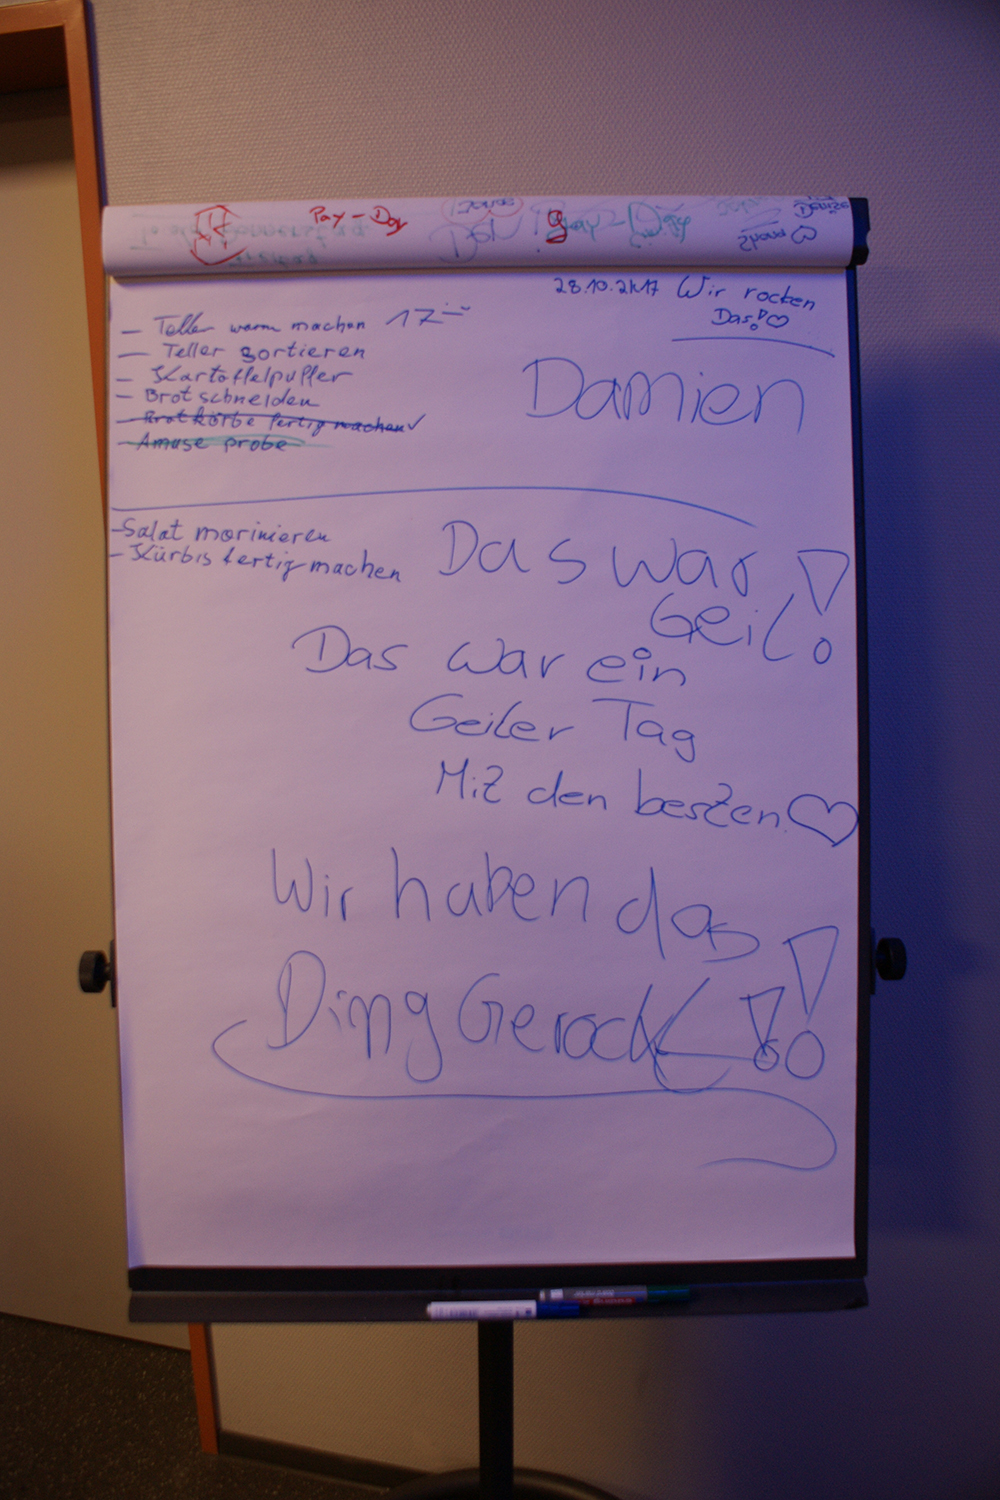 Pay-Day
Denise
Shana ♡
28.10.2k17 Wir rocken
Das! ♡
- Teller warm machen 17:--
- Teller sortieren
- Kartoffelpuffer
- Brot schneiden
- Brotkörbe fertig machen ✓
- Amuse probe
Damien
- Salat morinieren
- Kürbis fertig machen
Das war
Geil!
Das war ein
Geiler Tag
Mit den besten ♡
Wir haben das
Ding Gerockt!!